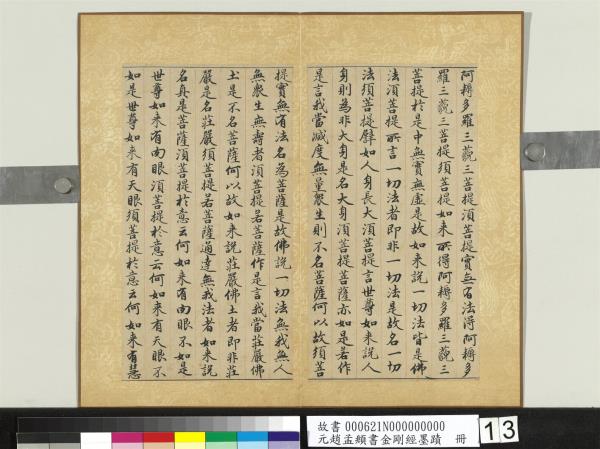 阿耨多羅三藐三菩提須菩提實無有法得阿耨多
羅三藐三菩提須菩提如来所得阿耨多羅三藐三
菩提於是中無實無虛是故如来說一切法皆是佛
法須菩提所言一切法者即非一切法是故名一切
法須菩提譬如人身長大須菩提言世尊如来說人
身則為非大身是名大身須菩提菩薩亦如是若作
是言我當滅度無量衆生則不名菩薩何以故須菩
提實無有法名為菩薩是故佛說一切法無我無人
無衆生無壽者須菩提若菩薩作是言我當莊嚴佛
土是不名菩薩何以故如来說莊嚴佛土者即非莊
嚴是名莊嚴須菩提若菩薩通達無我法者如来說
名真是菩薩須菩提於意云何如来有肉眼不如是
世尊如来有肉眼須菩提於意云何如来有天眼不
如是世尊如来有天眼須菩提於意云何如来有慧
故書 000621N000000000
元趙孟頫書金剛經墨蹟 冊
13